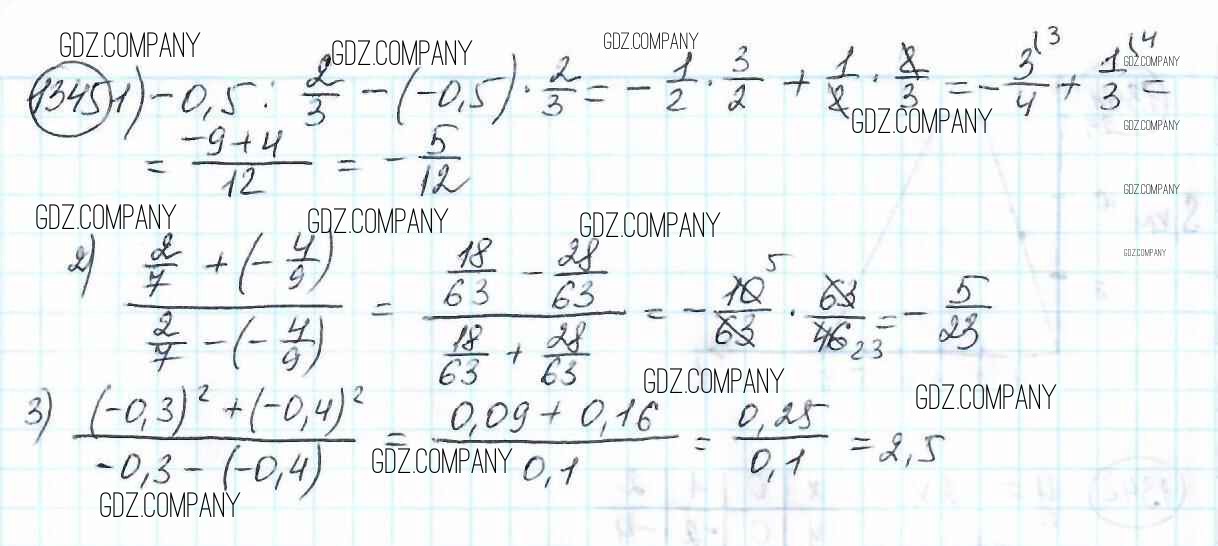 GDZ.COMPANY GDZ.COMPANY GDZ.COMPANY
1345 1) -0,5 : 2/3 - (-0,5) · 2/3 = - 1/2 · 3/2 + 1/2 · 2/3 = - 3/4 \3 + 1/3 \4 = GDZ.COMPANY
GDZ.COMPANY GDZ.COMPANY
= (-9+4)/12 = - 5/12
GDZ.COMPANY
GDZ.COMPANY GDZ.COMPANY GDZ.COMPANY
GDZ.COMPANY
2) (2/7 + (- 4/9))/(2/7 - (- 4/9)) = (18/63 - 28/63)/(18/63 + 28/63) = - 10/63 5 · 63/46 23 = - 5/23
GDZ.COMPANY GDZ.COMPANY
3) ((-0,3)² + (-0,4)²)/(-0,3 - (-0,4)) = (0,09 + 0,16)/0,1 = 0,25/0,1 = 2,5
GDZ.COMPANY
GDZ.COMPANY